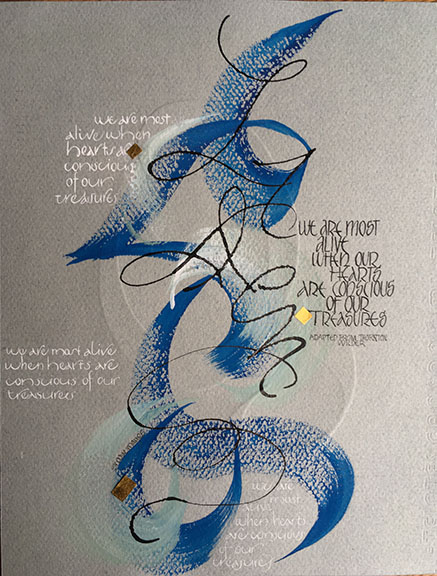 we are most
alive when
hearts are
conscious
of our
treasures
WE ARE MOST
ALIVE
WHEN OUR
HEARTS
ARE CONSCIOUS
OF OUR
TREASURES
ADAPTED FROM THORNTON
WILDER
we are most alive
when hearts are
conscious of our
treasures
we are
most
alive
when hearts
are conscious
of our
treasures